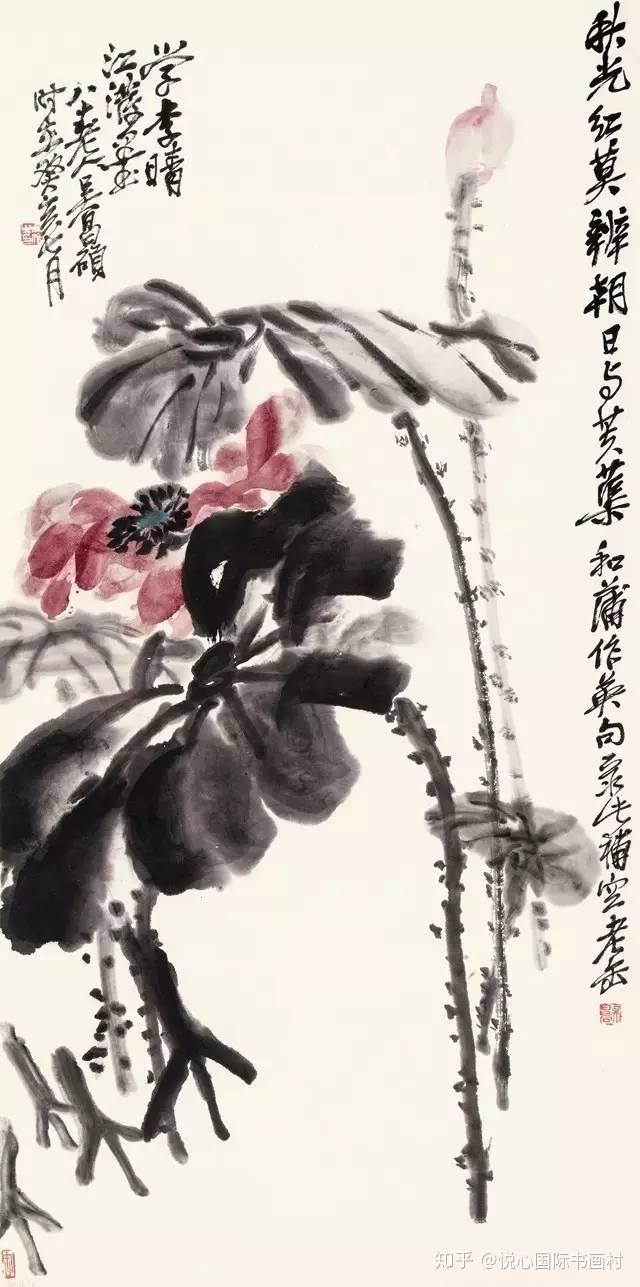 秋光红莫辨朝日与芙蕖和蒲作英句录此補空老缶
学李晴
江潑墨
八十老人吴昌碩
时在癸亥七月
知乎 @悦心国际书画村